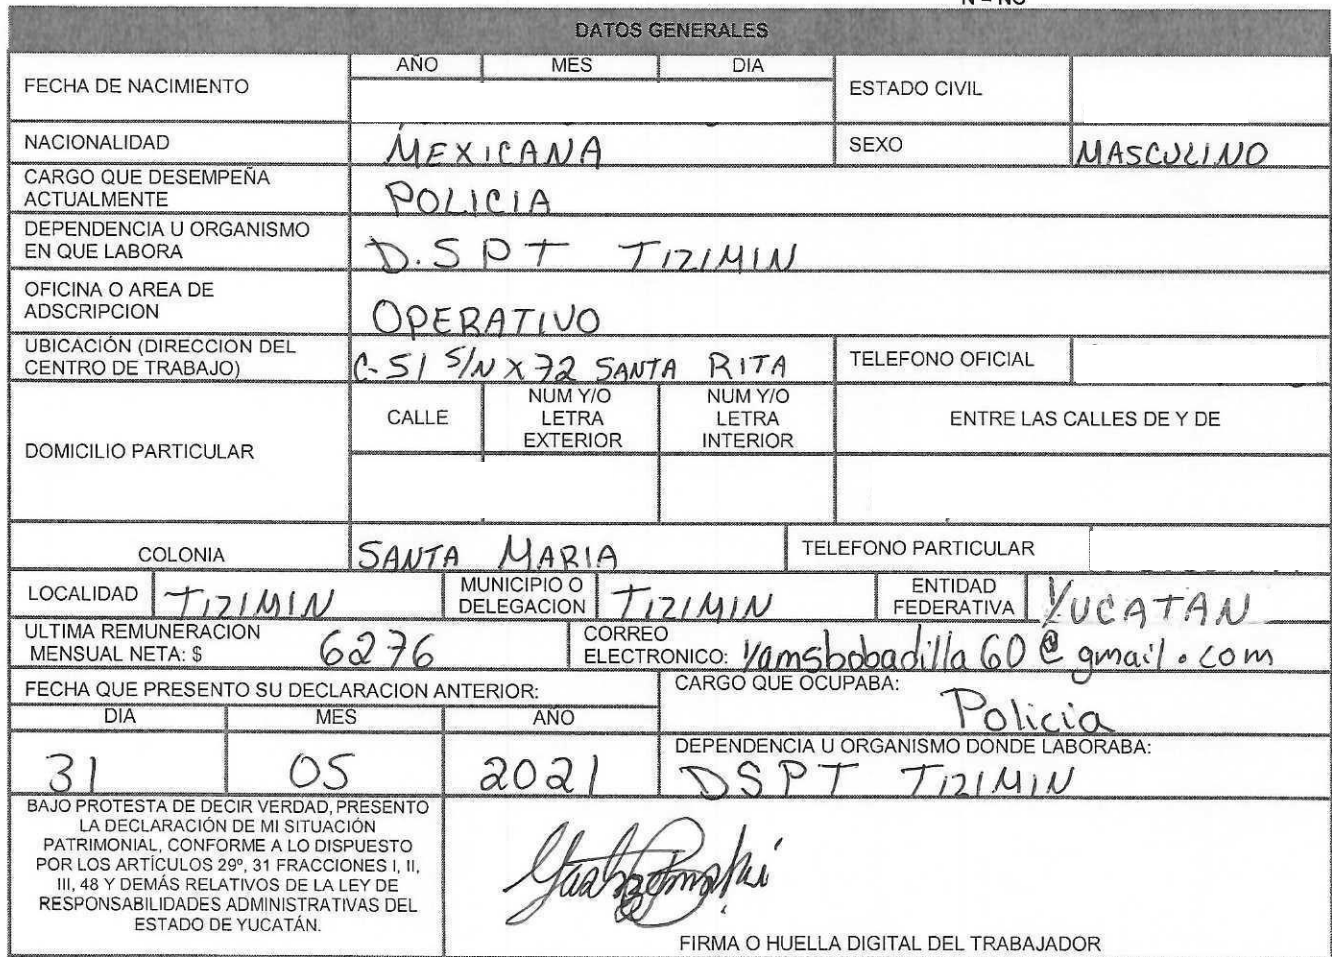 DATOS GENERALES
FECHA DE NACIMIENTO
AÑO MES DIA
ESTADO CIVIL
NACIONALIDAD MEXICANA SEXO MASCULINO
CARGO QUE DESEMPEÑA
ACTUALMENTE
POLICIA
DEPENDENCIA U ORGANISMO
EN QUE LABORA
D.SPT TIZIMIN
OFICINA O AREA DE
ADSCRIPCION
OPERATIVO
UBICACIÓN (DIRECCION DEL
CENTRO DE TRABAJO)
C-51 S/N X 72 SANTA RITA
TELEFONO OFICIAL
DOMICILIO PARTICULAR
CALLE
NUM Y/O
LETRA
EXTERIOR
NUM Y/O
LETRA
INTERIOR
ENTRE LAS CALLES DE Y DE
COLONIA SANTA MARIA TELEFONO PARTICULAR
LOCALIDAD TIZIMIN
MUNICIPIO O
DELEGACION
TIZIMIN
ENTIDAD
FEDERATIVA
YUCATAN
ULTIMA REMUNERACION
MENSUAL NETA: $ 6276
CORREO
ELECTRONICO: Yamsbobadilla60@gmail.com
FECHA QUE PRESENTO SU DECLARACION ANTERIOR:
DIA MES AÑO
31 05 2021
CARGO QUE OCUPABA:
Policia
DEPENDENCIA U ORGANISMO DONDE LABORABA:
DSPT TIZIMIN
BAJO PROTESTA DE DECIR VERDAD, PRESENTO
LA DECLARACIÓN DE MI SITUACIÓN
PATRIMONIAL, CONFORME A LO DISPUESTO
POR LOS ARTÍCULOS 29º, 31 FRACCIONES I, II,
III, 48 Y DEMÁS RELATIVOS DE LA LEY DE
RESPONSABILIDADES ADMINISTRATIVAS DEL
ESTADO DE YUCATÁN.
FIRMA O HUELLA DIGITAL DEL TRABAJADOR